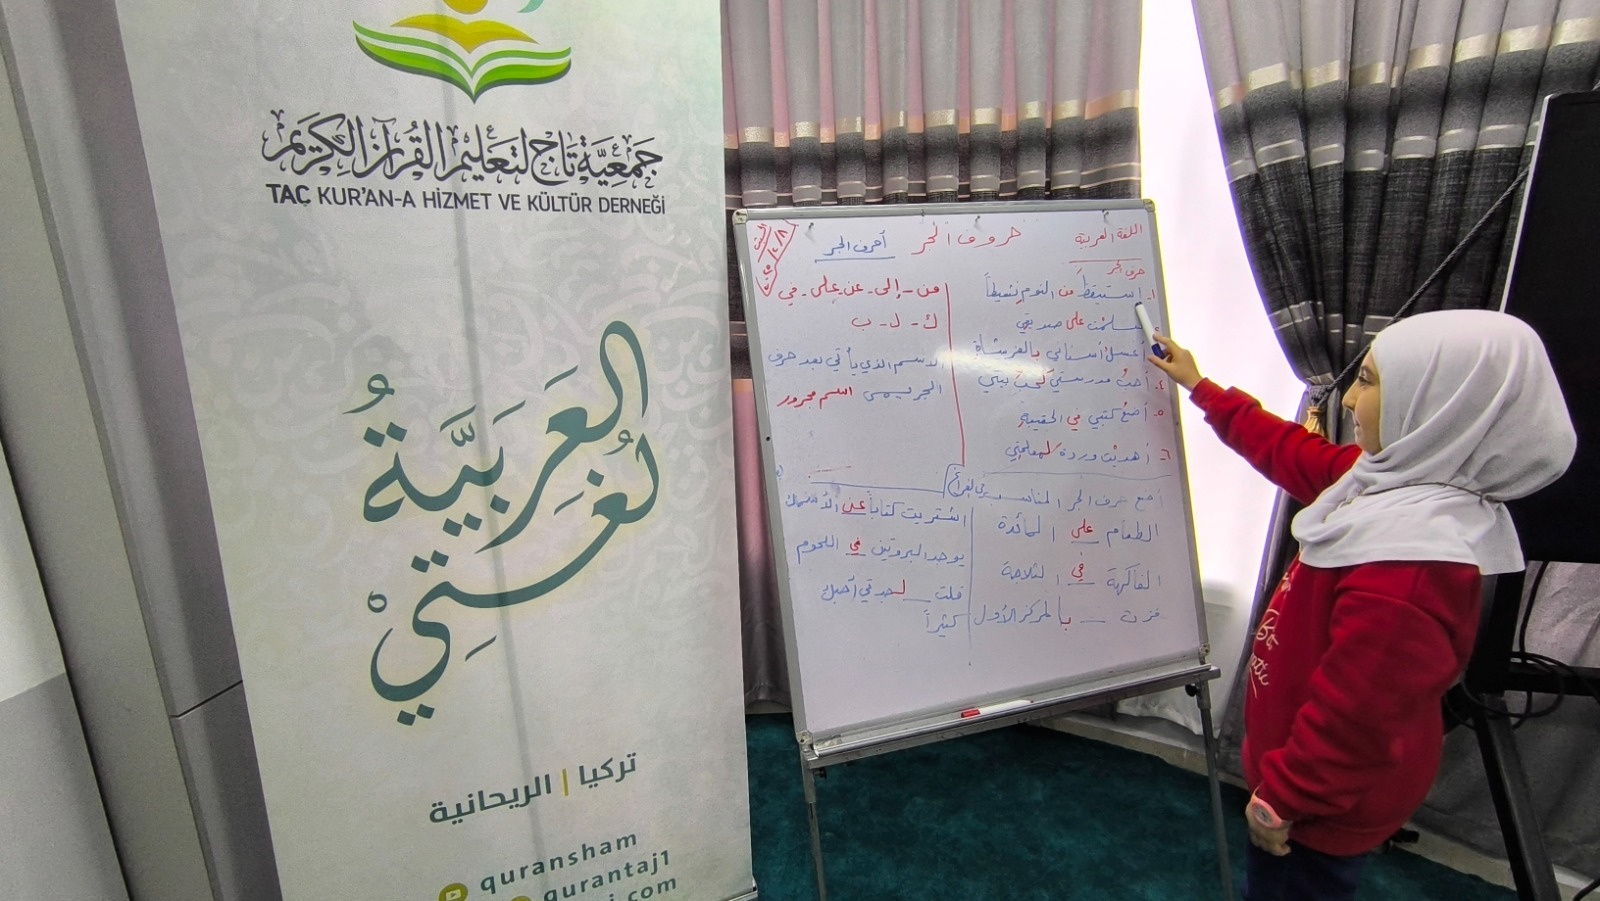 جَمْعِيَّة تَاج لتَعليم القُرآن الكَرِيم
TAÇ KUR'AN-A HİZMET VE KÜLTÜR DERNEĞİ
العَرَبيَّةُ
لُغَتِي
تركيا | الريحانية
quransham
qurantaj1
.com
اللغة العربية
حروف الجر
أحرف الجر
السبت
حرف الجر
١- استيقظُ من النوم نشيطاً
على صديقي
أغسلُ أسناني بالفرشاة
٤- أحبُّ مدرستي بيتي
٥- أضعُ كتبي في الحقيبة
٦- أهديْتُ وردة لمعلمتي
من - إلى - عن - على - في
ك - ل - ب
الاسم الذي يأتي بعد حرف
الجر يسمى اسم مجرور
أضع حرف الجر المناسب في الفراغ
الطعام على المائدة
الفاكهة في الثلاجة
فزت بالمركز الأول
اشتريت كتاباً عن الأسماك
يوجد البروتين في اللحوم
قلت لجدتي أحبك
كثيراً